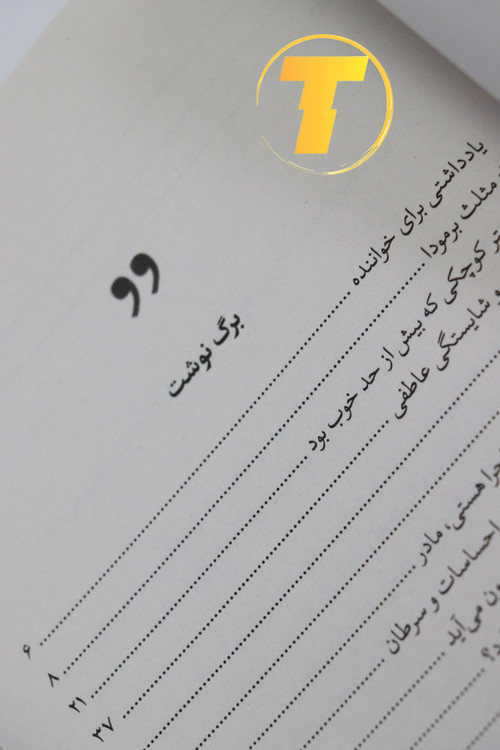 T
برگ نوشت
یادداشتی برای خواننده ........ ۶
مثلث برمودا ........ ۸
کوچکی که بیش از حد خوب بود ........ ۲۱
و شایستگی عاطفی ........ ۳۷
هستی، مادر
احساسات و سرطان
می‌آید